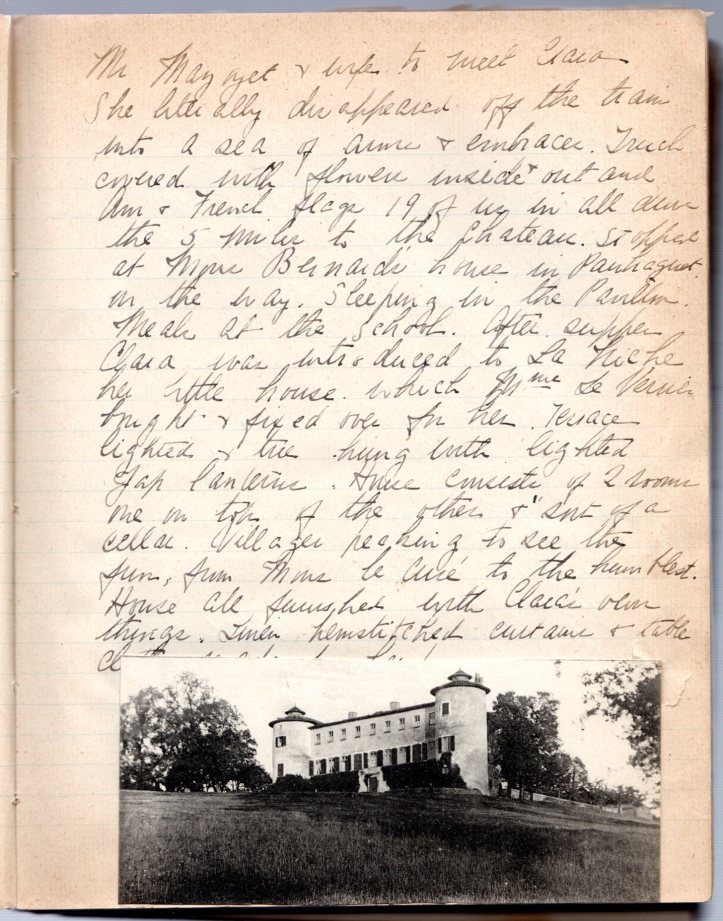 Mr & wife to meet Clara
She literally disappeared off the train
into a sea of arms & embraces. Truck
covered with flowers inside & out and
Am & French flags 19 of us in all down
the 5 miles to the Chateau. Stopped
at Mons house in
on the way. Sleeping in the Pavillon.
Meals at the School. After supper
Clara was introduced to La Niche
her little house which Mme
bought & fixed over for her. Terrace
lighted & tree hung with lighted
Jap lanterns. House consists of 2 rooms
one on top of the other & sort of a
cellar. Villagers peaking to see the
fun, from Mons le Curé to the humblest.
House all furnished with Clara's own
things. Linen hemstitched curtains & table